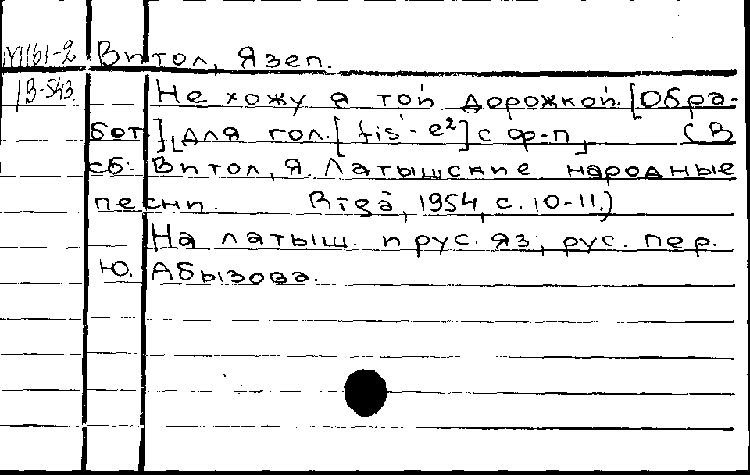 М161-2 Витол, Язеп.
В-543 Не хожу я той дорожкой. [Обра-
бот], для гол. [fis¹-e²] с ф-п, (В
сб: Витол, Я. Латышские народные
песни. Rīgā, 1954, с. 10-11.)
На латыш. и рус. яз, рус. пер.
Ю. Абызова.